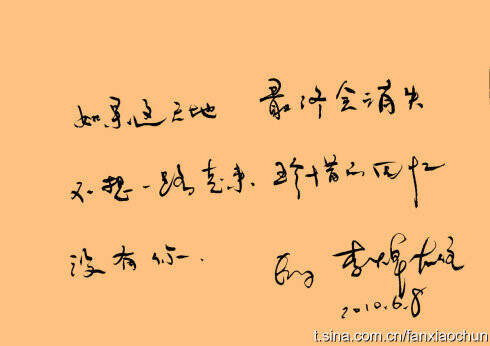 如果这天地 最终会消失
不想一路走来、珍惜的回忆
没有你. 李焯雄
2010.6.8
t.sina.com.cn/fanxiaochun